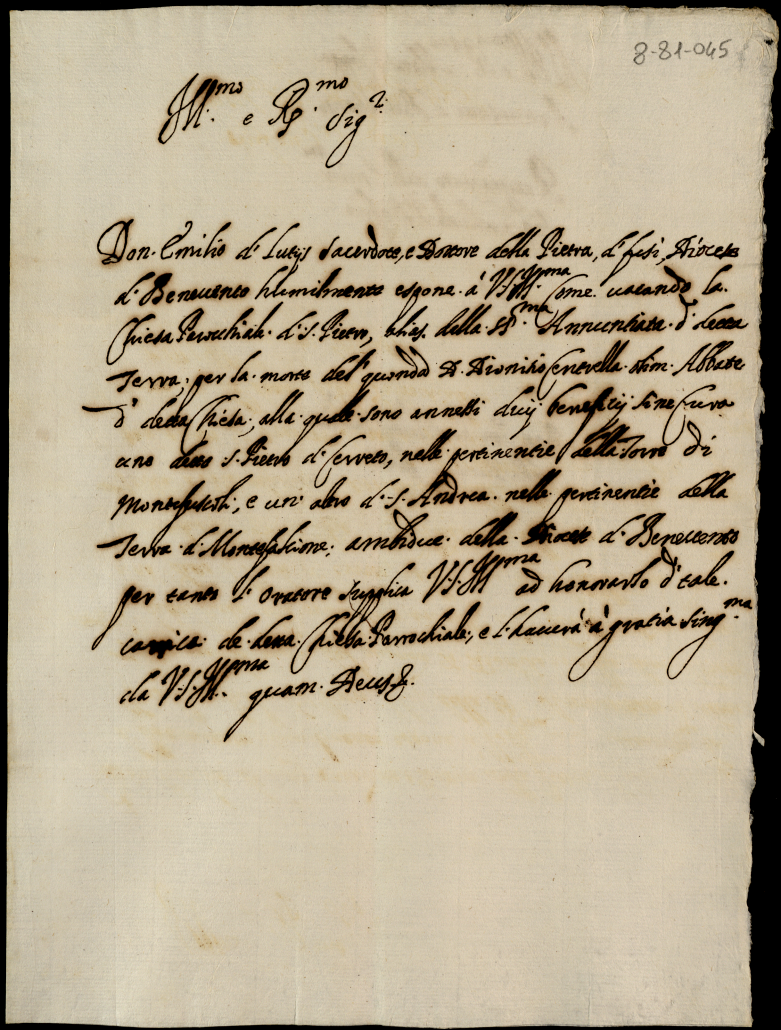 8-81-045
Ill.mo e R.mo Sig.r
Don Emilio d' Lutijs Sacerdote, e Dottore della Pietra, d' fusi, Diocese
d' Benevento humilmente espone à V.S. Ill.ma come vacando la
Chiesa Parochiale d' S. Pietro, alias della SS.ma Annuntiata d' detta
Terra, per la morte del quondã D. Dionisio Centrella olim Abbate
d' detta Chiesa, alla quale sono annessi duij beneficij sine Cura
uno detto S. Pietro d' Cerreto, nelle pertinentie della Torre di
Montefuscoli, e un' altro d' S. Andrea nelle pertinentie della
Terra d' Montefalcione, ambidue della Diocese d' Benevento
per tanto l' oratore supplica V.S. Ill.ma ad honorarlo d' tale
carrica de detta Chiesa Parrochiale, e l' haverà à gratia sing.ma
da V.S. Ill.ma quam Deus &.